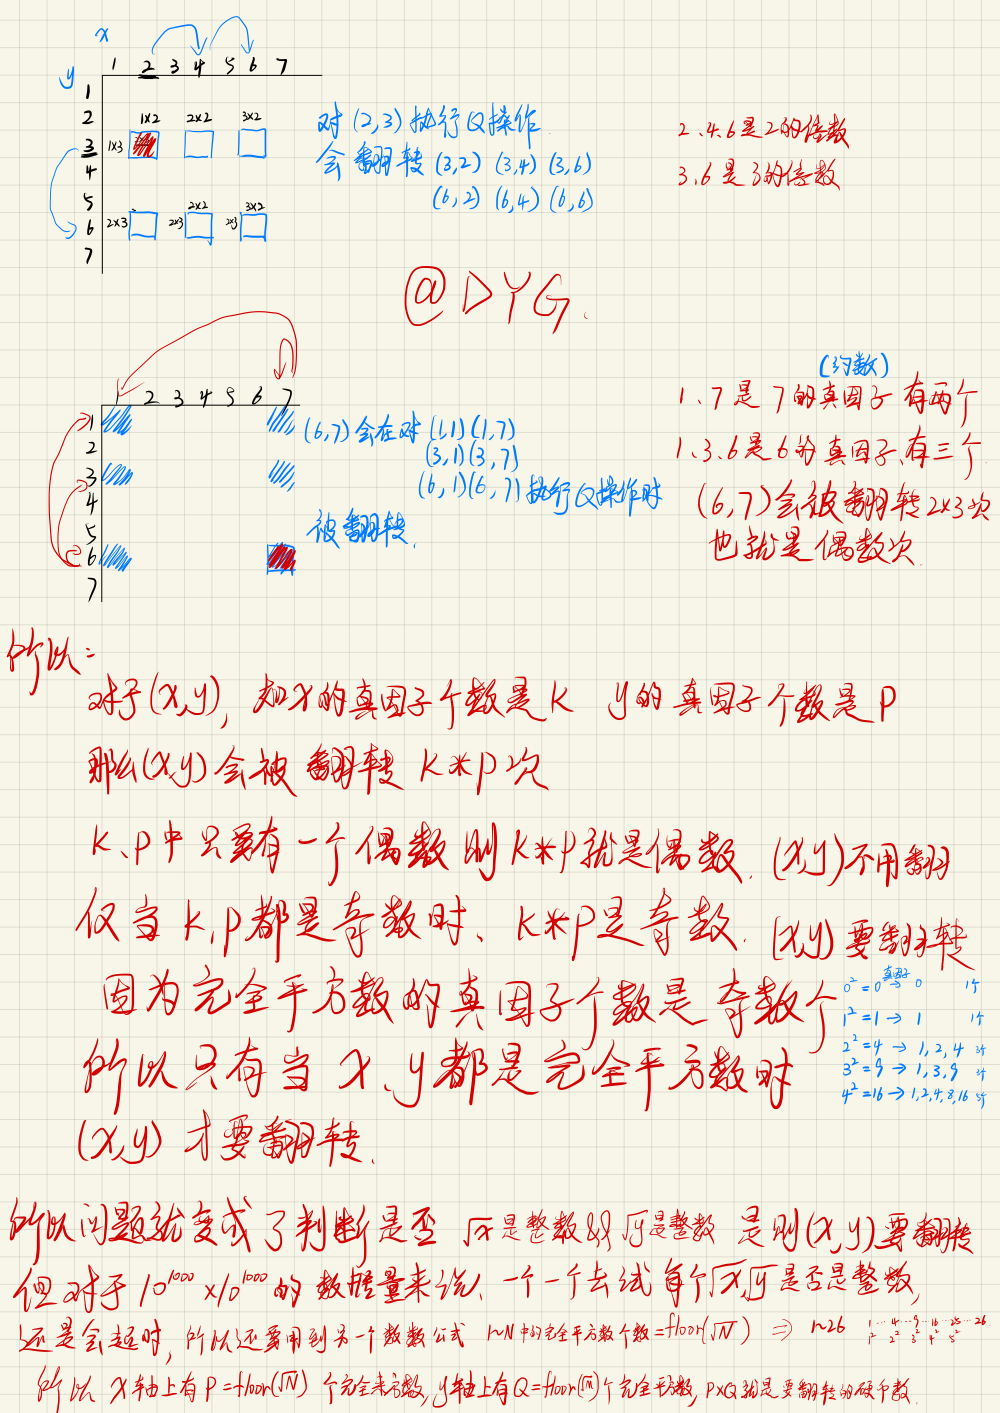 x
1 2 3 4 5 6 7
y
1
2
3
4
5
6
7
1×2 2×2 3×2
1×3
2×2 3×2
2×3 2×3 2×3
对(2,3)执行Q操作
会翻转(3,2) (3,4) (3,6)
(6,2) (6,4) (6,6)
2、4、6是2的倍数
3、6是3的倍数
@DYG.
1 2 3 4 5 6 7
1
2
3
4
5
6
7
(6,7)会在对(1,1)(1,7)
(3,1)(3,7)
(6,1)(6,7)执行Q操作时
被翻转.
(约数)
1、7是7的真因子 有两个
1、3、6是6的真因子、有三个
(6,7)会被翻转2×3次
也就是偶数次.
所以:
对于(x,y), 如x的真因子个数是K y的真因子个数是P
那么(x,y)会被翻转K*P次
K、P中只要有一个偶数则K*P就是偶数. (x,y)不用翻
仅当K,P都是奇数时、K*P是奇数. (x,y)要翻转
因为完全平方数的真因子个数是奇数个
所以只有当x、y都是完全平方数时
(x,y)才要翻转.
真因子
0²=0→0 1个
1²=1→1 1个
2²=4→1,2,4 3个
3²=9→1,3,9 3个
4²=16→1,2,4,8,16 5个
所以问题就变成了判断是否√x是整数&&√y是整数 是则(x,y)要翻转
但对于10¹⁰⁰⁰×10¹⁰⁰⁰的数据量来说、一个一个去试每个√x,√y是否是整数,
还是会超时, 所以还要用到另一个数数公式 1~N中的完全平方数个数=floor(√N) ⇒ 1~26 1…4…9…16…25…26
1² 2² 3² 4² 5²
所以x轴上有P=floor(√N)个完全平方数, y轴上有Q=floor(√M)个完全平方数, P×Q就是要翻转的硬币数.